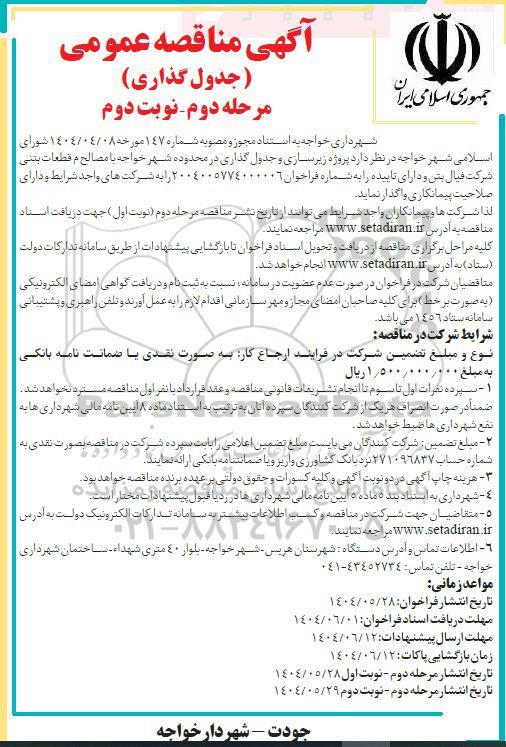 جمهوری اسلامی ایران
آگهی مناقصه عمومی
(جدول گذاری)
مرحله دوم - نوبت دوم
شهرداری خواجه به استناد مجوز و مصوبه شماره ۱۴۷ مورخه ۱۴۰۴/۰۴/۰۸ شورای
اسلامی شهر خواجه در نظر دارد پروژه زیرسازی و جدول گذاری در محدوده شهر خواجه با مصالح م قطعات بتنی
شرکت فیال بتن و دارای تاییده را به شماره فراخوان ۲۰۰۴۰۰۵۷۷۴۰۰۰۰۰۶ را به شرکت های واجد شرایط و دارای
صلاحیت پیمانکاری واگذار نماید.
لذا شرکت ها و پیمانکاران واجد شرایط می توانند از تاریخ نشر مناقصه مرحله دوم (نوبت اول) جهت دریافت اسناد
مناقصه به آدرس www.setadiran.ir مراجعه نمایند.
کلیه مراحل برگزاری مناقصه از دریافت و تحویل اسناد فراخوان تا بازگشایی پیشنهادات از طریق سامانه تدارکات دولت
(ستاد) به آدرس www.setadiran.ir انجام خواهد شد.
متقاضیان شرکت در فراخوان در صورت عدم عضویت در سامانه، نسبت به ثبت نام و دریافت گواهی امضای الکترونیکی
(به صورت بر خط) برای کلیه صاحبان امضای مجاز و مهر سازمانی اقدام لازم را به عمل آورند و تلفن راهبری و پشتیبانی
سامانه ستاد ۱۴۵۶ می باشد.
شرایط شرکت در مناقصه:
نوع و مبلغ تضمین شرکت در فرایند ارجاع کار: به صورت نقدی یا ضمانت نامه بانکی
به مبلغ ۱/۵۰۰/۰۰۰/۰۰۰ ریال
۱- سپرده نفرات اول تا سوم تا انجام تشریفات قانونی مناقصه و عقد قرارداد با نفر اول مناقصه مسترد نخواهد شد.
ضمناً در صورت انصراف هر یک از شرکت کنندگان سپرده آنان به ترتیب به استناد ماده ۸ آیین نامه مالی شهرداری ها به
نفع شهرداری ها ضبط خواهد شد.
۲- مبلغ تضمین: شرکت کنندگان می بایست مبلغ تضمین اعلامی را بابت سپرده شرکت در مناقصه بصورت نقدی به
شماره حساب ۲۷۱۰۹۶۸۳۷ نزد بانک کشاورزی واریز و یا ضمانتنامه بانکی ارائه نمایند.
۳- هزینه چاپ آگهی در دو نوبت آگهی و کلیه کسورات و حقوق دولتی بر عهده برنده مناقصه خواهد بود.
۴- شهرداری به استناد بند ۵ ماده ۵ آیین نامه مالی شهرداری ها در رد یا قبول پیشنهادات مختار است.
۵- متقاضیان جهت شرکت در مناقصه و کسب اطلاعات بیشتر به سامانه تدارکات الکترونیک دولت به آدرس
www.setadiran.ir مراجعه نمایند.
۶- اطلاعات تماس و آدرس دستگاه: شهرستان هریس - شهر خواجه - بلوار ۴۰ متری شهداء - ساختمان شهرداری
خواجه - تلفن تماس: ۴۳۴۵۲۷۳۴-۰۴۱
مواعد زمانی:
تاریخ انتشار فراخوان: ۱۴۰۴/۰۵/۲۸
مهلت دریافت اسناد فراخوان: ۱۴۰۴/۰۶/۰۱
مهلت ارسال پیشنهادات: ۱۴۰۴/۰۶/۱۲
زمان بازگشایی پاکات: ۱۴۰۴/۰۶/۱۲
تاریخ انتشار مرحله دوم - نوبت اول ۱۴۰۴/۰۵/۲۸
تاریخ انتشار مرحله دوم - نوبت دوم ۱۴۰۴/۰۵/۲۹
جودت - شهردار خواجه
ParsNamadData
۰۲۱-۸۸۳۴۹۶۷۰